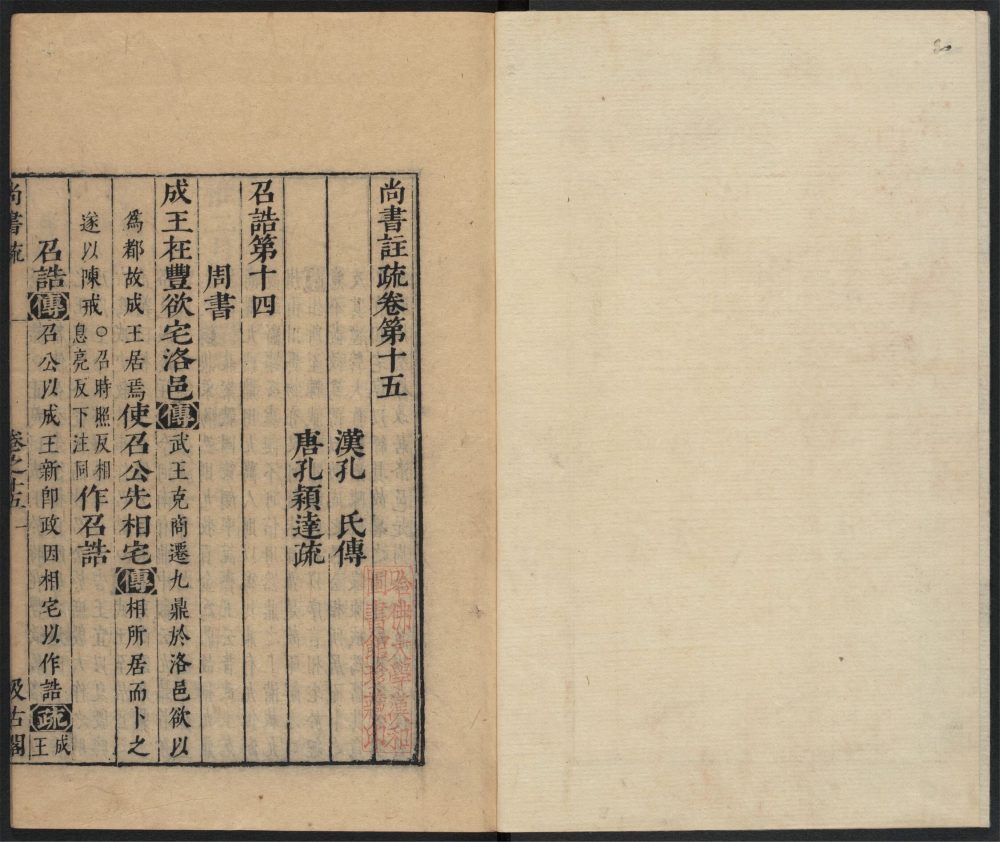 尚書註疏卷第十五
漢孔　氏傳
唐孔穎達疏
召誥第十四
周書
成王在豐欲宅洛邑傳武王克商遷九鼎於洛邑欲以
爲都故成王居焉使召公先相宅傳相所居而卜之
遂以陳戒○召時照反相
息亮反下注同作召誥
召誥傳召公以成王新卽政因相宅以作誥疏成
王
尚書疏　卷之十五　一　汲古閣
哈佛大學漢和
圖書館珍藏印